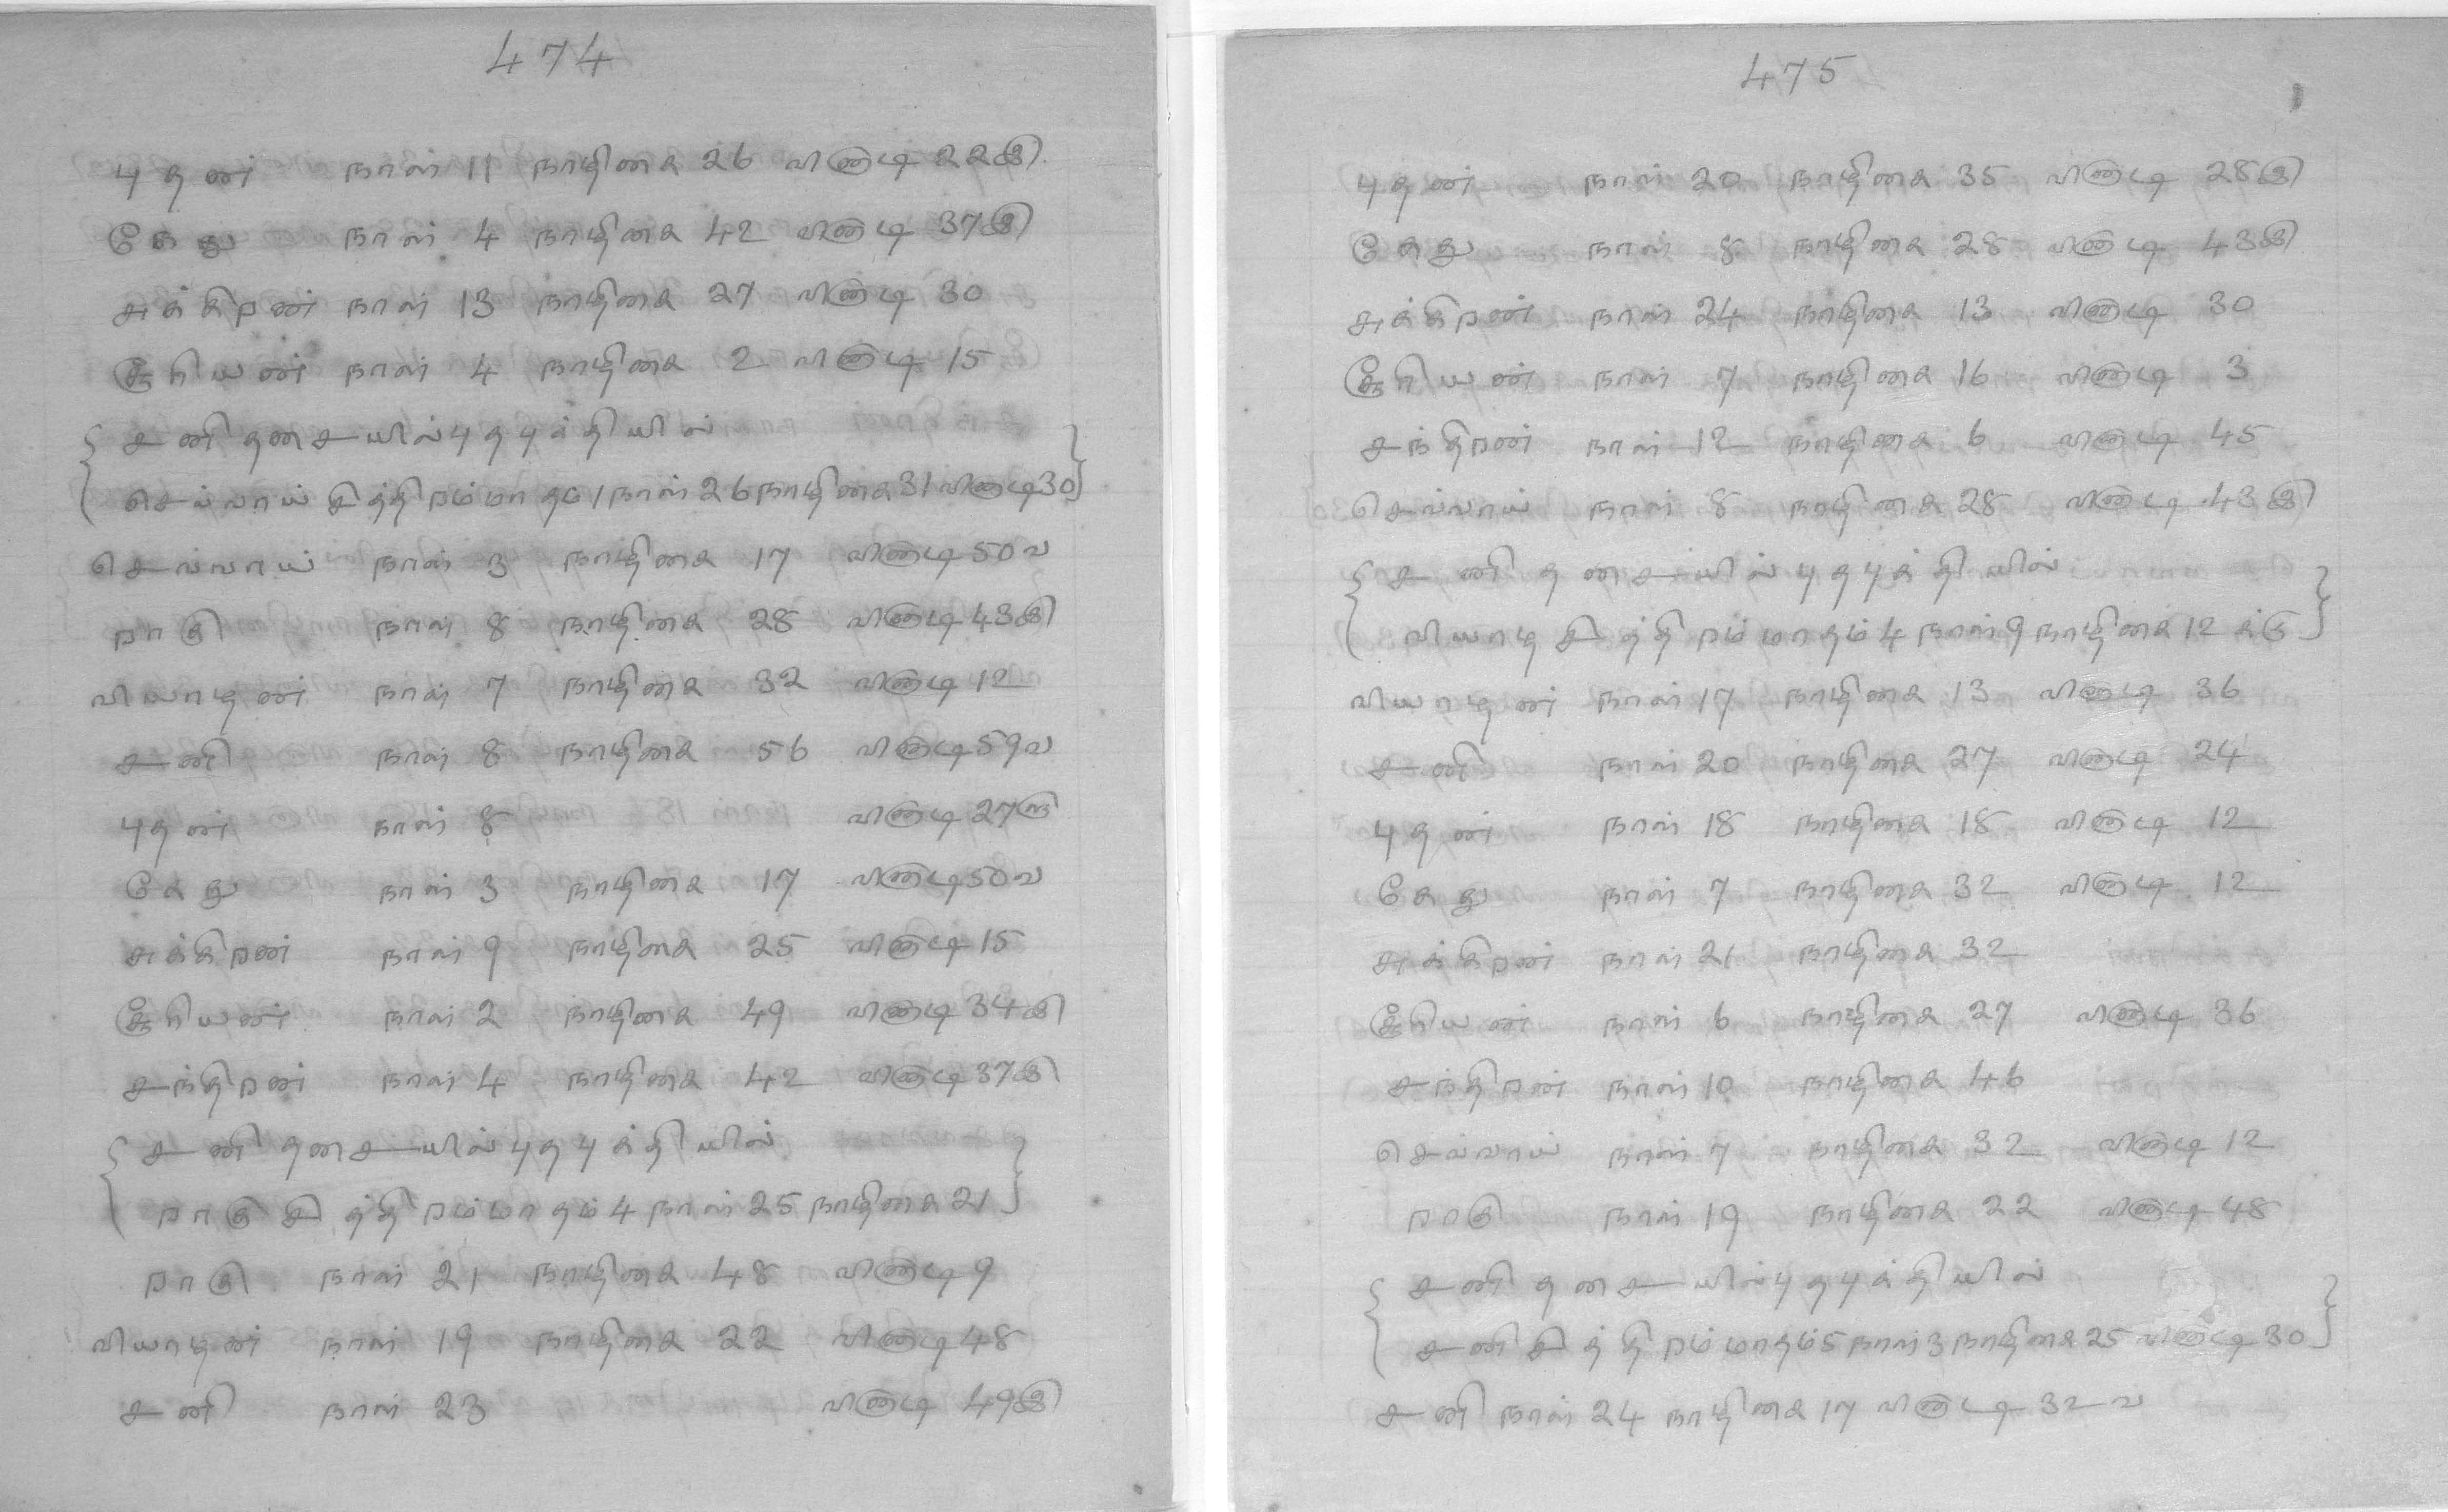 474
புதன் நாள் 11 நாழிகை 26 விநாடி 22௫
கேது நாள் 4 நாழிகை 42 விநாடி 37௫
சுக்கிறன் நாள் 13 நாழிகை 27 விநாடி 30
சூரியன் நாள் 4 நாழிகை 2 விநாடி 15
{ சனி தசையில் புதபுக்தியில்
செவ்வாய் சித்திறம் மாதம் 1 நாள் 26 நாழிகை 31 விநாடி 30 }
செவ்வாய் நாள் 3 நாழிகை 17 விநாடி 50வ
றாகு நாள் 8 நாழிகை 28 விநாடி 43
வியாழன் நாள் 7 நாழிகை 32 விநாடி 12
சனி நாள் 8 நாழிகை 56 விநாடி 59வ
புதன் நாள் 8 விநாடி 27
கேது நாள் 3 நாழிகை 17 விநாடி 50வ
சுக்கிறன் நாள் 9 நாழிகை 25 விநாடி 15
சூரியன் நாள் 2 நாழிகை 49 விநாடி 34
சந்திறன் நாள் 4 நாழிகை 42 விநாடி 37
{ சனி தசையில் புதபுக்தியில்
றாகு சித்திறம் மாதம் 4 நாள் 25 நாழிகை 21 }
றாகு நாள் 21 நாழிகை 48 விநாடி 9
வியாழன் நாள் 19 நாழிகை 22 விநாடி 48
சனி நாள் 23 விநாடி 49
475
புதன் நாள் 20 நாழிகை 35 விநாடி 28
கேது நாள் 8 நாழிகை 28 விநாடி 43
சுக்கிறன் நாள் 24 நாழிகை 13 விநாடி 30
சூரியன் நாள் 7 நாழிகை 16 விநாடி 3
சந்திறன் நாள் 12 நாழிகை 6 விநாடி 45
செவ்வாய் நாள் 8 நாழிகை 28 விநாடி 43
{ சனி தசையில் புதபுக்தியில்
வியாழ சித்திறம் மாதம் 4 நாள் 9 நாழிகை 12 க்கு }
வியாழன் நாள் 17 நாழிகை 13 விநாடி 36
சனி நாள் 20 நாழிகை 27 விநாடி 24
புதன் நாள் 18 நாழிகை 18 விநாடி 12
கேது நாள் 7 நாழிகை 32 விநாடி 12
சுக்கிறன் நாள் 21 நாழிகை 32
சூரியன் நாள் 6 நாழிகை 27 விநாடி 36
சந்திறன் நாள் 10 நாழிகை 46
செவ்வாய் நாள் 7 நாழிகை 32 விநாடி 12
றாகு நாள் 19 நாழிகை 22 விநாடி 48
{ சனி தசையில் புதபுக்தியில்
சனி சித்திறம் மாதம் 5 நாள் 3 நாழிகை 25 விநாடி 30 }
சனி நாள் 24 நாழிகை 17 விநாடி 32வ